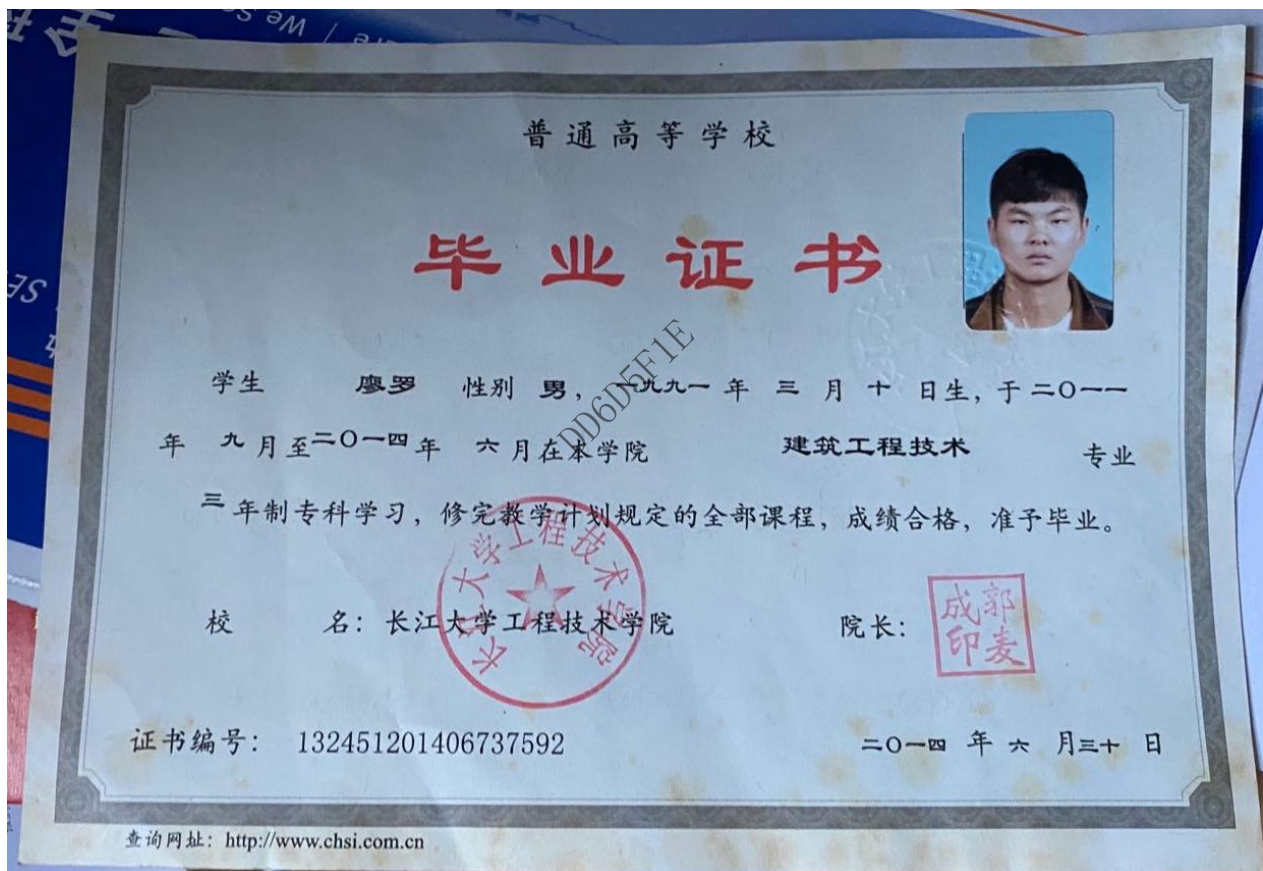 We Se
普通高等学校
毕业证书
学生 廖罗 性别 男，一九九一 年 三 月 十 日生，于二〇一一
年 九 月至二〇一四年 六 月在本学院 建筑工程技术 专业
三 年制专科学习，修完教学计划规定的全部课程，成绩合格，准予毕业。
DD6D5F1E
长江大学工程技术学院
校 名：长江大学工程技术学院 院长：
郭麦成印
证书编号： 132451201406737592 二〇一四 年 六 月三十 日
查询网址：http://www.chsi.com.cn